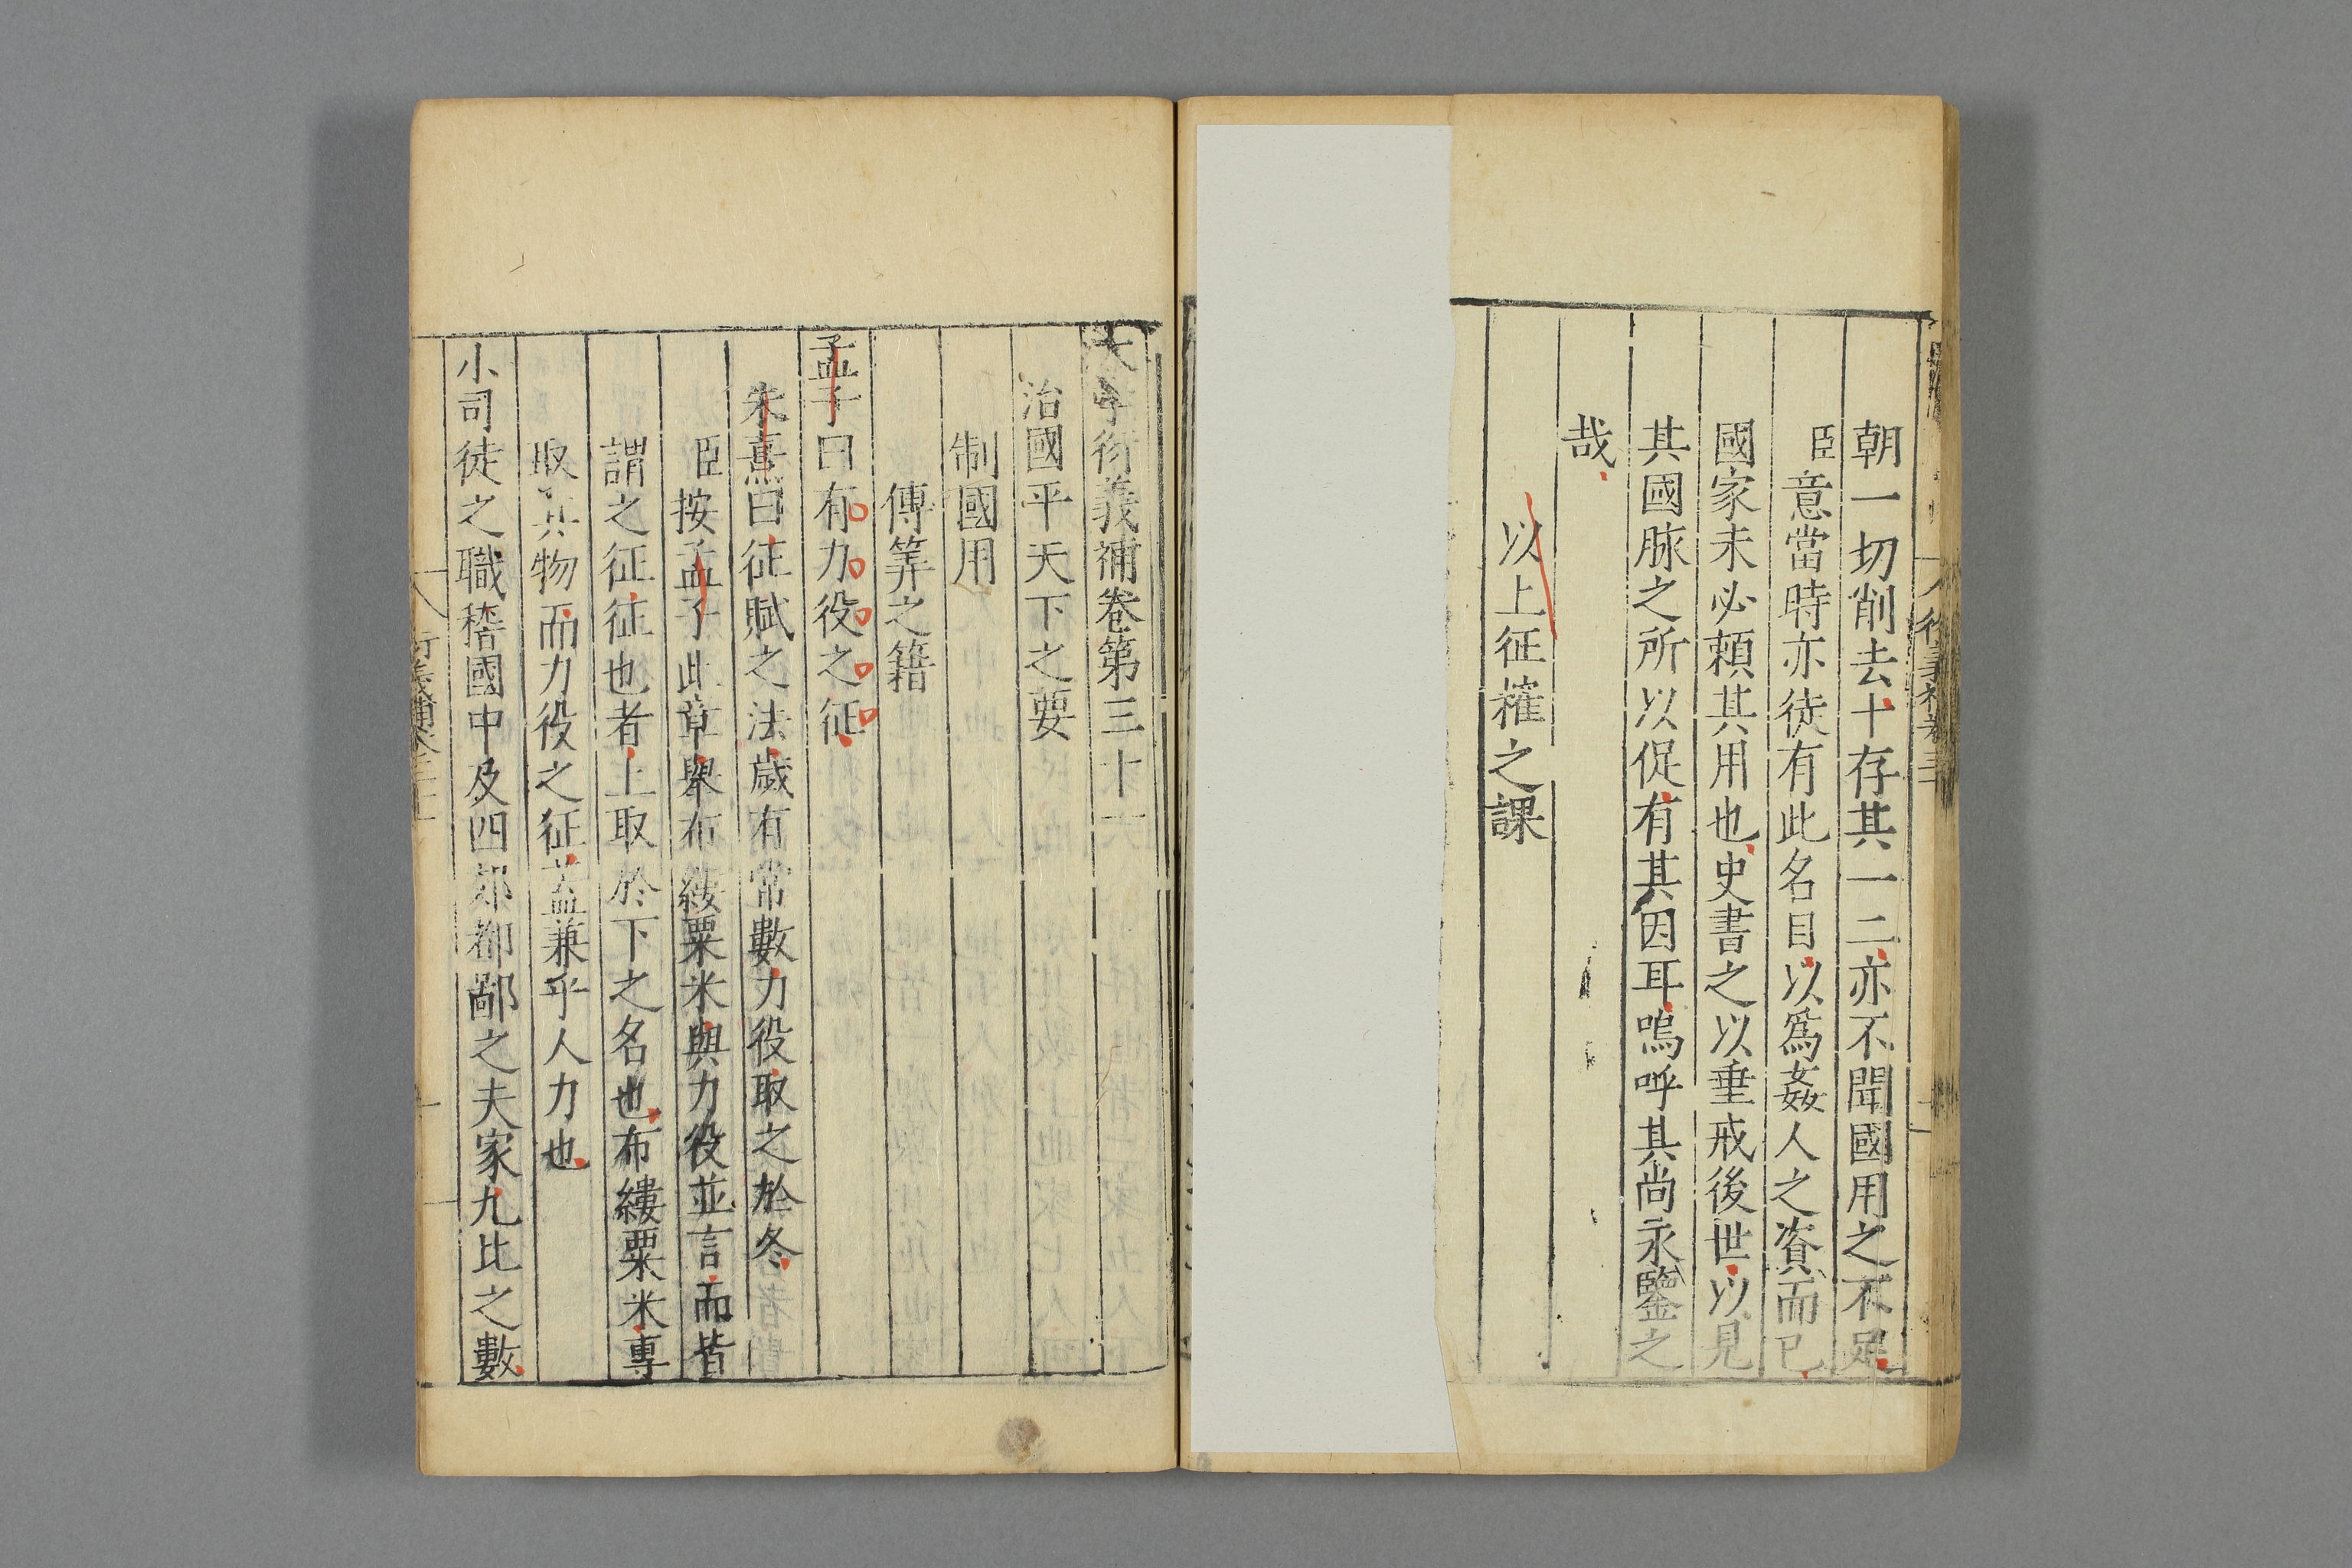 朝一切削去十存其一二亦不聞國用之不足
臣意當時亦徒有此名目以為姦人之資而已
國家未必賴其用也史書之以垂戒後世以見
其國脉之所以促有其因耳嗚呼其尚永鑒之
哉
以上征榷之課
大學衍義補卷第三十一
治國平天下之要
制國用
傳筭之籍
孟子曰有力役之征
朱熹曰征賦之法歲有常數力役取之於冬
臣按孟子此章舉布縷粟米與力役並言而皆
謂之征征也者上取於下之名也布縷粟米專
取其物而力役之征蓋兼乎人力也
小司徒之職稽國中及四郊都鄙之夫家九比之數
衍義補卷三十一